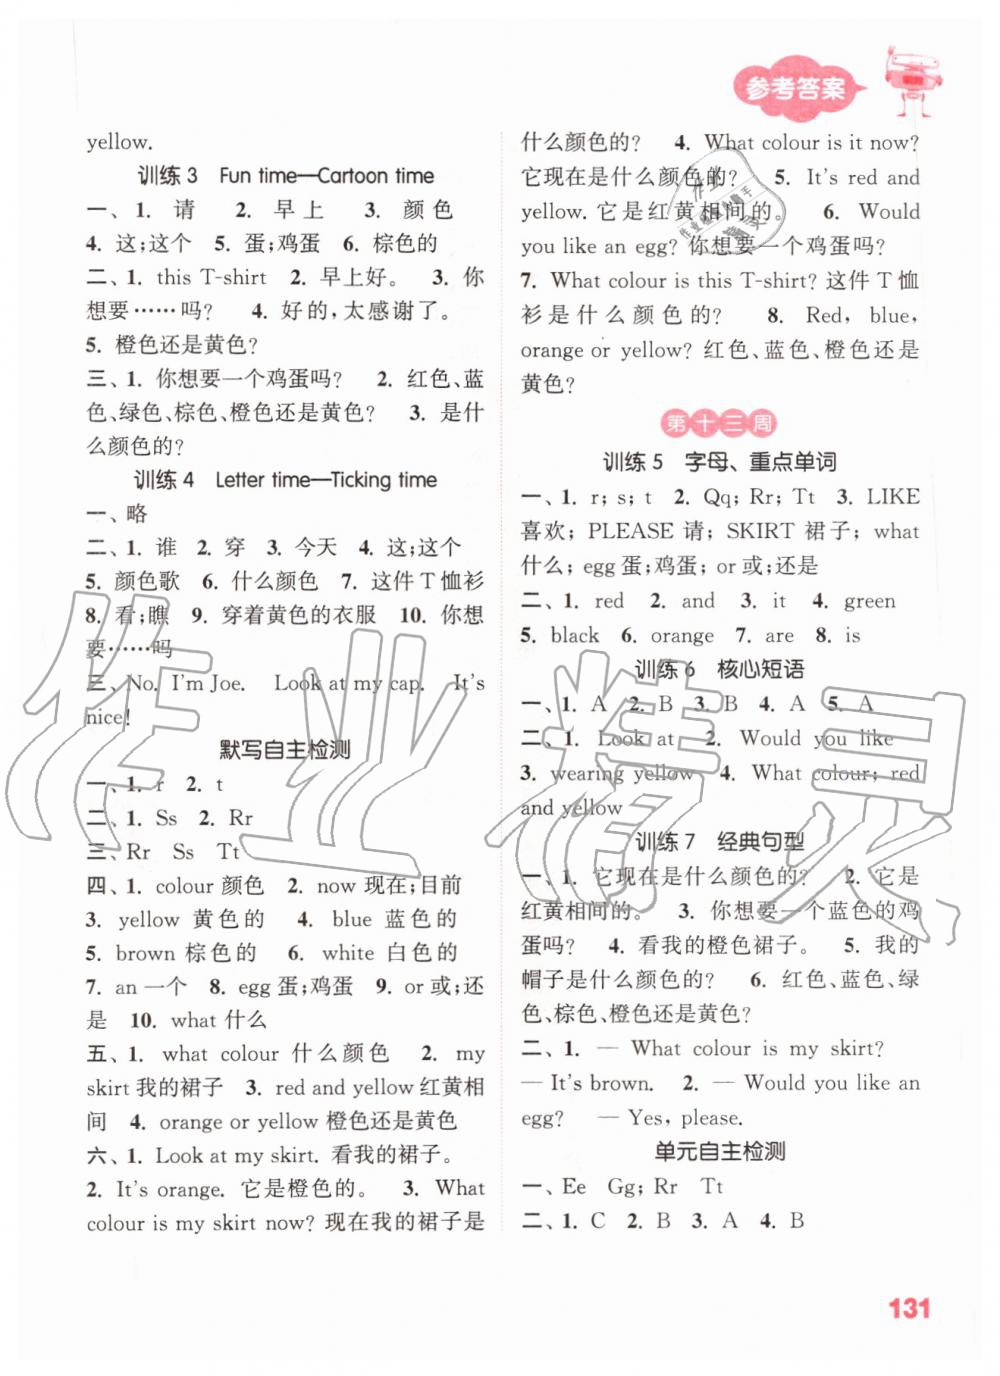 参考答案
yellow.
训练3 Fun time—Cartoon time
一、1. 请 2. 早上 3. 颜色
4. 这;这个 5. 蛋;鸡蛋 6. 棕色的
二、1. this T-shirt 2. 早上好。 3. 你
想要……吗? 4. 好的,太感谢了。
5. 橙色还是黄色?
三、1. 你想要一个鸡蛋吗? 2. 红色、蓝
色、绿色、棕色、橙色还是黄色? 3. 是什
么颜色的?
训练4 Letter time—Ticking time
一、略
二、1. 谁 2. 穿 3. 今天 4. 这;这个
5. 颜色歌 6. 什么颜色 7. 这件T恤衫
8. 看;瞧 9. 穿着黄色的衣服 10. 你想
要……吗
三、No. I'm Joe. Look at my cap. It's
nice!
默写自主检测
一、1. r 2. t
二、1. Ss 2. Rr
三、Rr Ss Tt
四、1. colour 颜色 2. now 现在;目前
3. yellow 黄色的 4. blue 蓝色的
5. brown 棕色的 6. white 白色的
7. an 一个 8. egg 蛋;鸡蛋 9. or 或;还
是 10. what 什么
五、1. what colour 什么颜色 2. my
skirt 我的裙子 3. red and yellow 红黄相
间 4. orange or yellow 橙色还是黄色
六、1. Look at my skirt. 看我的裙子。
2. It's orange. 它是橙色的。 3. What
colour is my skirt now? 现在我的裙子是
什么颜色的? 4. What colour is it now?
它现在是什么颜色的? 5. It's red and
yellow. 它是红黄相间的。 6. Would
you like an egg? 你想要一个鸡蛋吗?
7. What colour is this T-shirt? 这件T恤
衫是什么颜色的? 8. Red, blue,
orange or yellow? 红色、蓝色、橙色还是
黄色?
第十三周
训练5 字母、重点单词
一、1. r; s; t 2. Qq; Rr; Tt 3. LIKE
喜欢; PLEASE 请; SKIRT 裙子; what
什么; egg 蛋;鸡蛋; or 或;还是
二、1. red 2. and 3. it 4. green
5. black 6. orange 7. are 8. is
训练6 核心短语
一、1. A 2. B 3. B 4. A 5. A
二、1. Look at 2. Would you like
3. wearing yellow 4. What colour; red
and yellow
训练7 经典句型
一、1. 它现在是什么颜色的? 2. 它是
红黄相间的。 3. 你想要一个蓝色的鸡
蛋吗? 4. 看我的橙色裙子。 5. 我的
帽子是什么颜色的? 6. 红色、蓝色、绿
色、棕色、橙色还是黄色?
二、1. — What colour is my skirt?
— It's brown. 2. — Would you like an
egg? — Yes, please.
单元自主检测
一、Ee Gg; Rr Tt
二、1. C 2. B 3. A 4. B
131
作业精灵